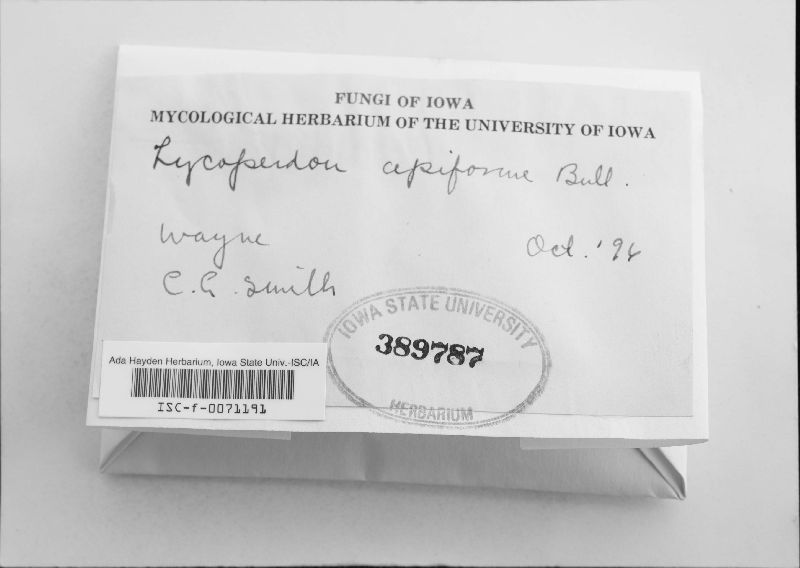 FUNGI OF IOWA
MYCOLOGICAL HERBARIUM OF THE UNIVERSITY OF IOWA
Lycoperdon cepiforme Bull.
Wayne
Oct. '96
C. G. Smith
IOWA STATE UNIVERSITY
389787
HERBARIUM
Ada Hayden Herbarium, Iowa State Univ.-ISC/IA
ISC-f-0071191